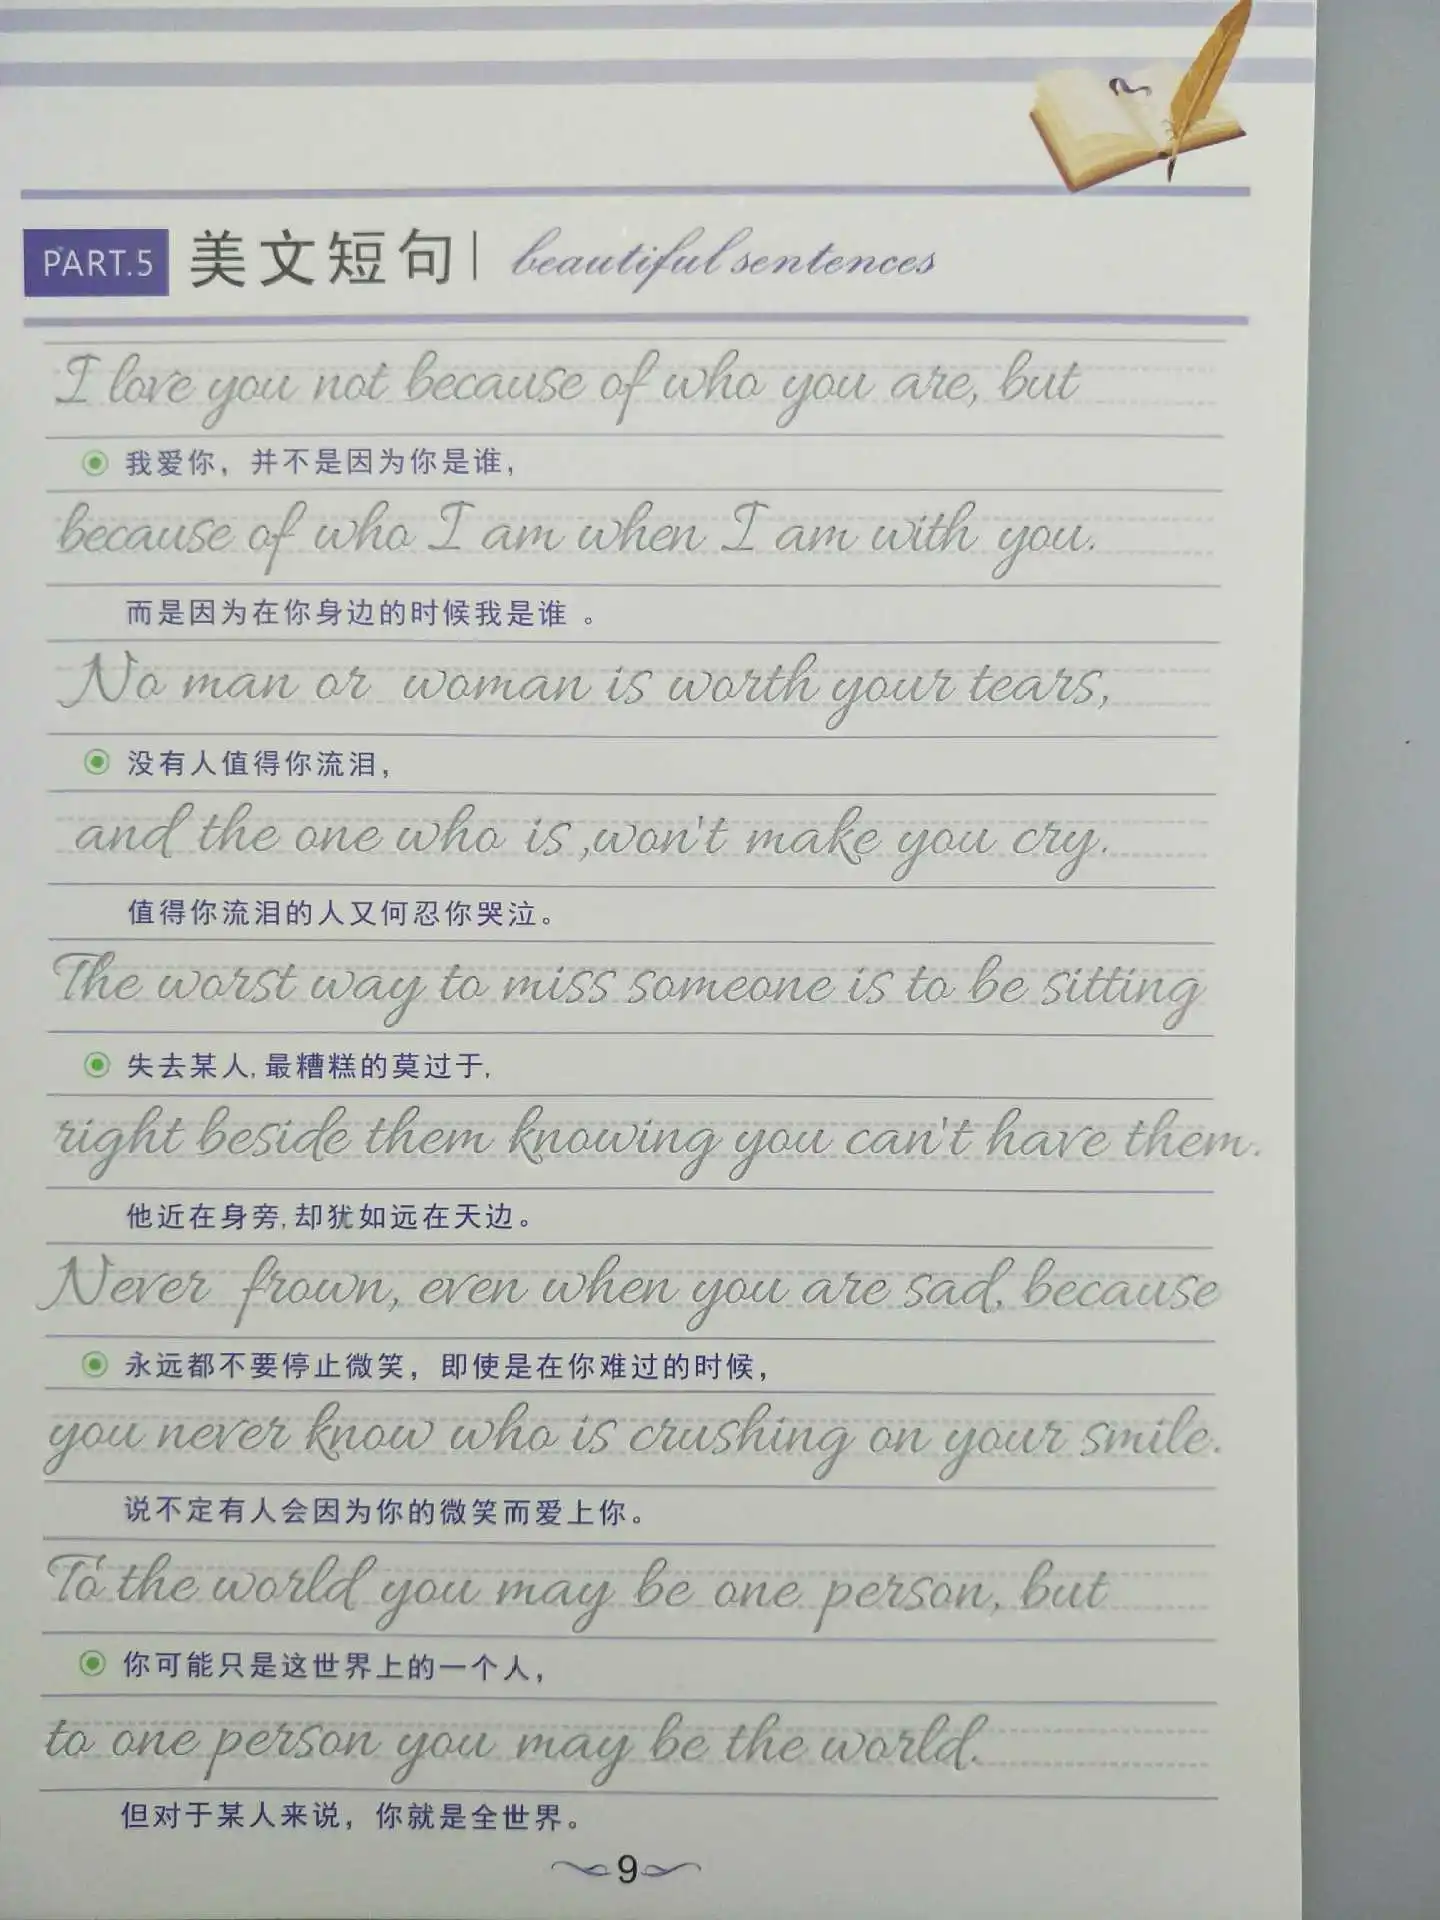 PART.5 美文短句 beautiful sentences
I love you not because of who you are, but
我爱你，并不是因为你是谁，
because of who I am when I am with you.
而是因为在你身边的时候我是谁 。
No man or woman is worth your tears,
没有人值得你流泪，
and the one who is ,won't make you cry.
值得你流泪的人又何忍你哭泣。
The worst way to miss someone is to be sitting
失去某人,最糟糕的莫过于,
right beside them knowing you can't have them.
他近在身旁,却犹如远在天边。
Never frown, even when you are sad, because
永远都不要停止微笑，即使是在你难过的时候，
you never know who is crushing on your smile.
说不定有人会因为你的微笑而爱上你。
To the world you may be one person, but
你可能只是这世界上的一个人，
to one person you may be the world.
但对于某人来说，你就是全世界。
9